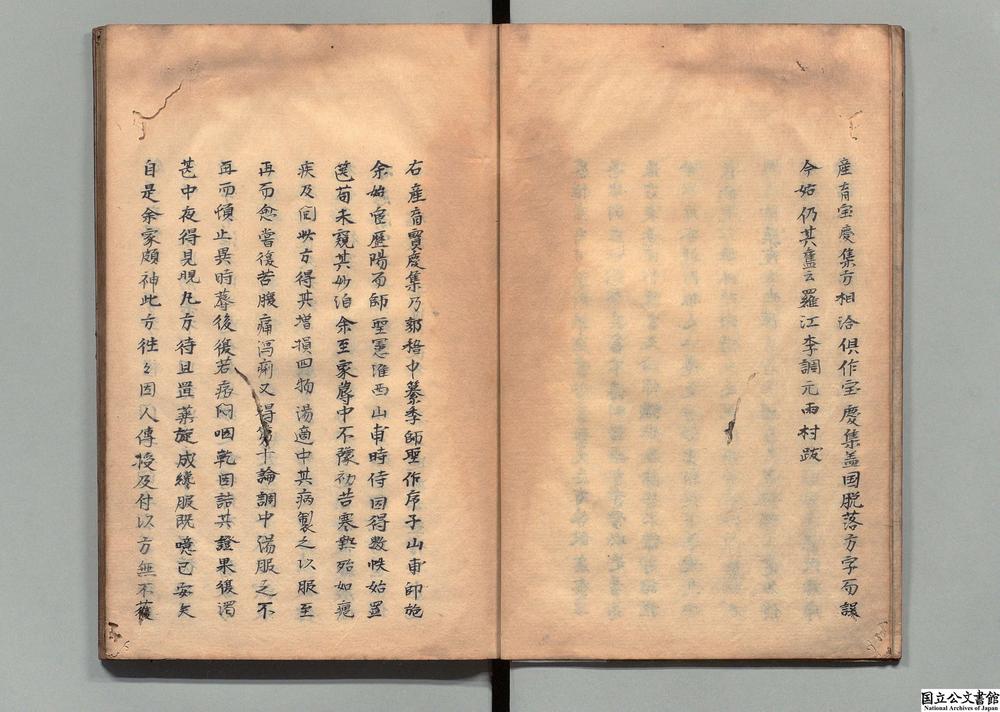 産育宝慶集方相洽俱作宝慶集盖因脱落方字而誤
今姑仍其舊云羅江李調元雨村跋
右産育寳慶集乃郭稽中纂季師聖作序子山甫師施
余始官歷陽而師聖憲淮西山甫時侍因得數帙始置
篋笥未窺其妙洎余至家蓐中不豫初苦寒熱殆如瘧
疾及囙此方得其增損四物湯適中其病製之以服至
再而愈嘗復苦腹痛瀉痢又得第十論調中湯服之不
再而頓止異時蓐後復若痞闷咽乾因詰其證果後濁
甚中夜得見睍丸方待旦置薬旋成纔服既噫已安矣
自是余家頗神此方往々因人傳授及付以方無不獲
国立公文書館
National Archives of Japan